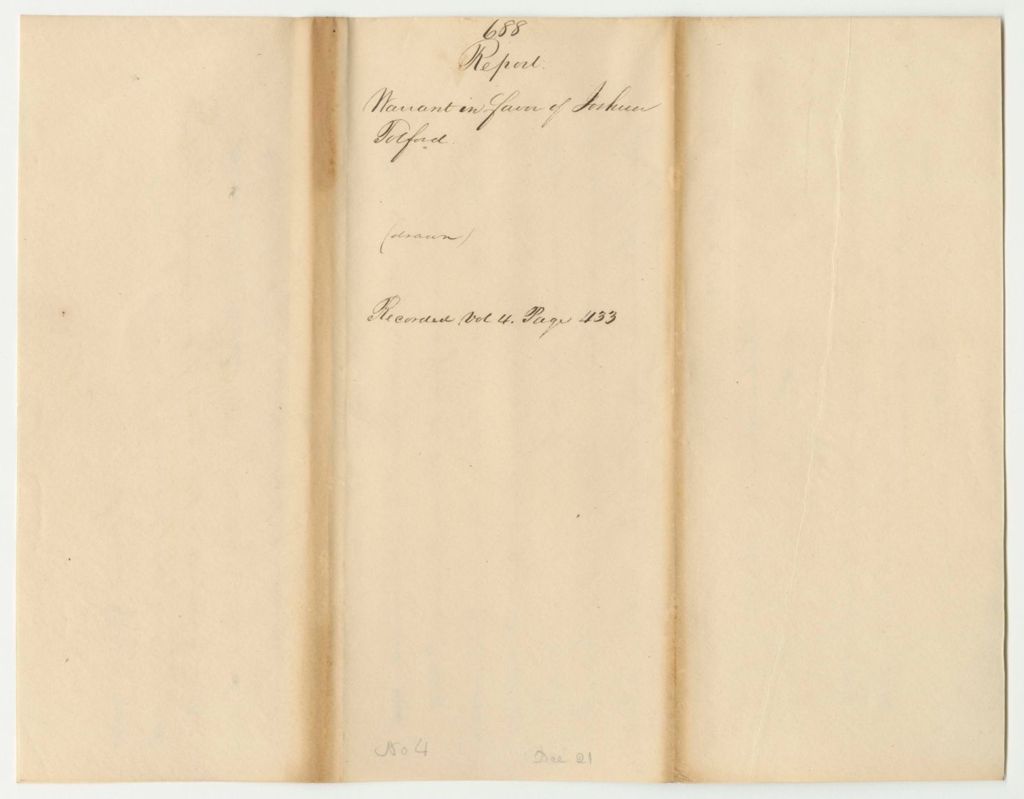 688
Report.
Warrant in favor of Joshua
Tolford.
(drawn)
Recorded Vol 4. Page 433
No 4
Dec 21